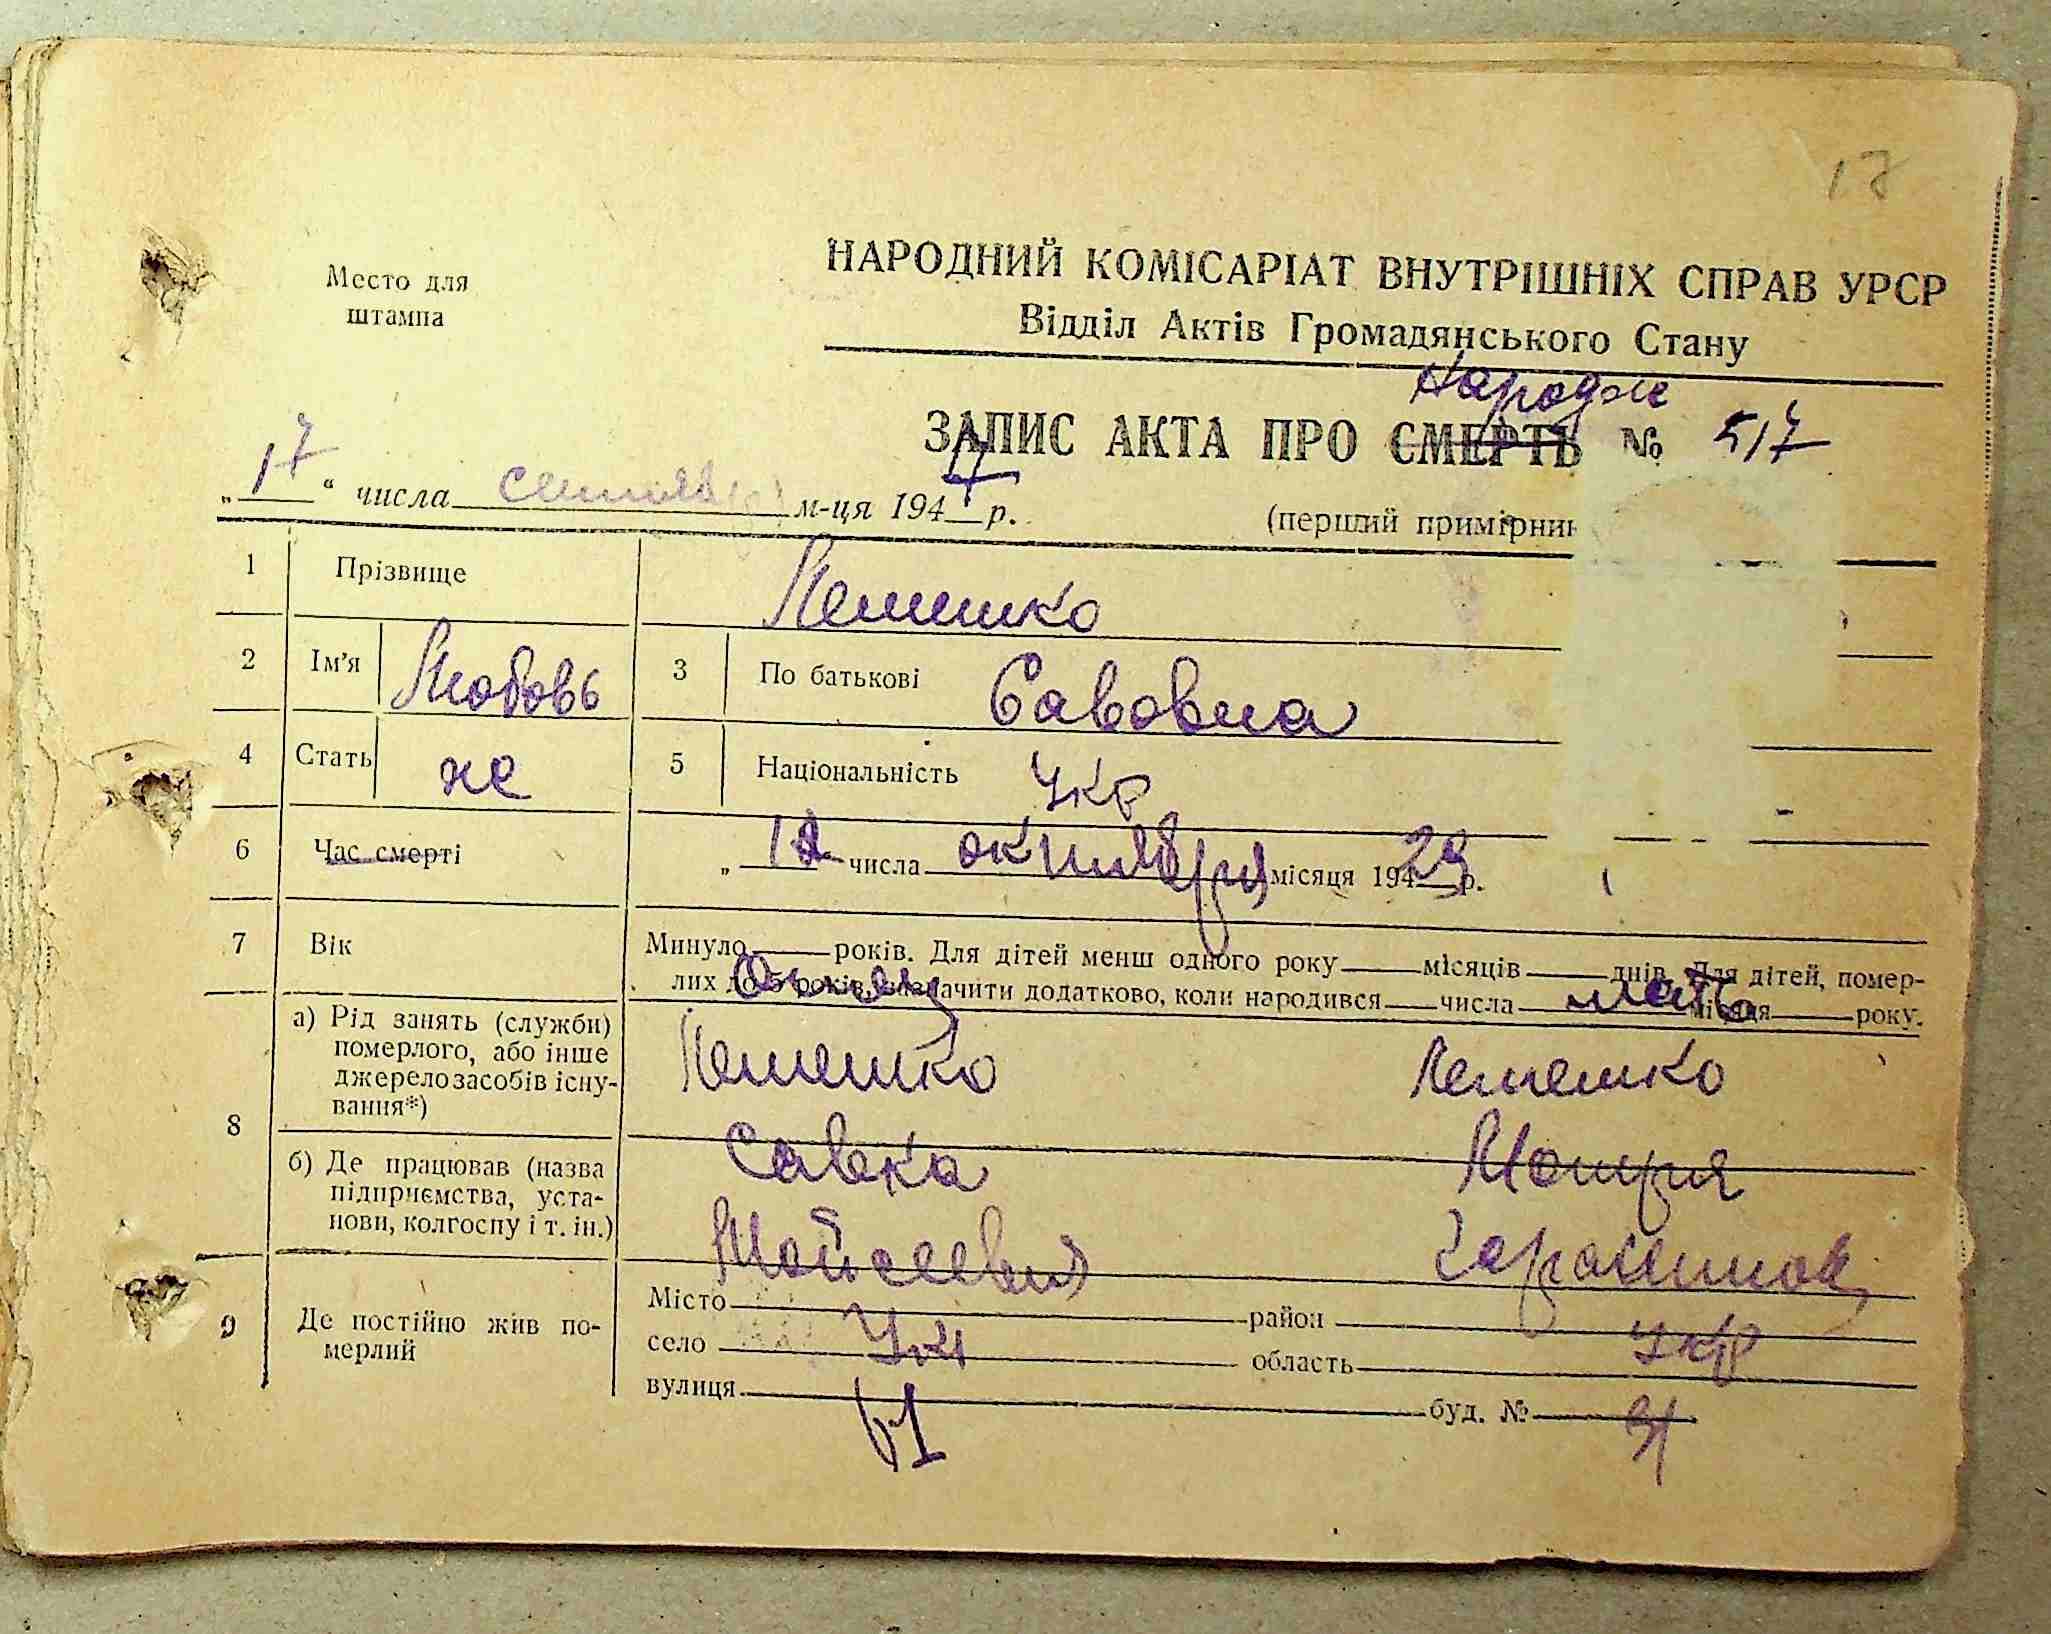 17
Место для
штампа
НАРОДНИЙ КОМІСАРІАТ ВНУТРІШНІХ СПРАВ УРСР
Відділ Актів Громадянського Стану
Народж
ЗАПИС АКТА ПРО СМЕРТЬ № 517
„17“ числа сентября м-ця 1944 р.
(перший примірник
1 Прізвище Лемешко
2 Ім'я Любовь 3 По батькові Савовна
4 Стать же 5 Національність Укр
6 Час смерті „12 числа октября місяця 194 29 р.
7 Вік Минуло років. Для дітей менш одного року місяців днів. Для дітей, помер-
лих до 5 років, зазначити додатково, коли народився числа місяця року.
отец мать
8 а) Рід занять (служби) померлого, або інше джерело засобів існу-вання*)
Лемешко Лемешко
б) Де працював (назва підприємства, уста-нови, колгоспу і т. ін.)
Савка Мотря
Мойсеевич
9 Де постійно жив по-мерлий
Місто район
село область Укр
вулиця буд. №